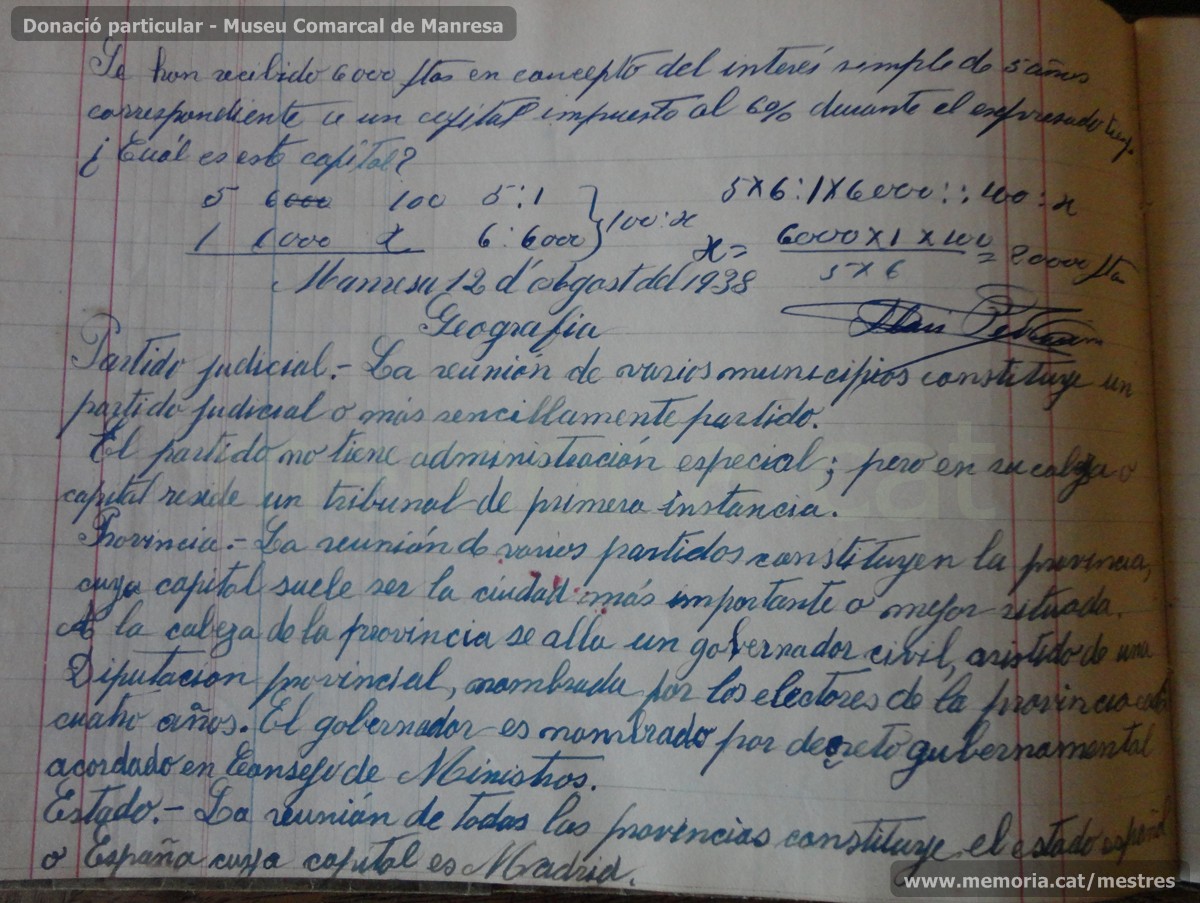 Donació particular - Museu Comarcal de Manresa
Se han recibido 6000 ptas en concepto del interés simple de 5 años
correspondiente a un capital impuesto al 6% durante el expresado
¿Cuál es este capital?
5 6000 100 5:1 5x6:1x6000::100:x
1 6000 x 6:6000 } 100:x x= 6000x1x100 = 20000 ptas
5x6
Manresa 12 d'Agost del 1938
Geografia
Partido judicial.- La reunión de varios municipios constituye un
partido judicial o más sencillamente partido.
El partido no tiene administración especial; pero en su cabeza o
capital reside un tribunal de primera instancia.
Provincia.- La reunión de varios partidos constituyen la provincia,
cuya capital suele ser la ciudad más importante o mejor situada.
A la cabeza de la provincia se alla un gobernador civil, asistido de una
Diputación provincial, nombrada por los electores de la provincia cada
cuatro años. El gobernador es nombrado por decreto gubernamental
acordado en Consejo de Ministros.
Estado.- La reunión de todas las provincias constituye el estado español
o España cuya capital es Madrid.
www.memoria.cat/mestres